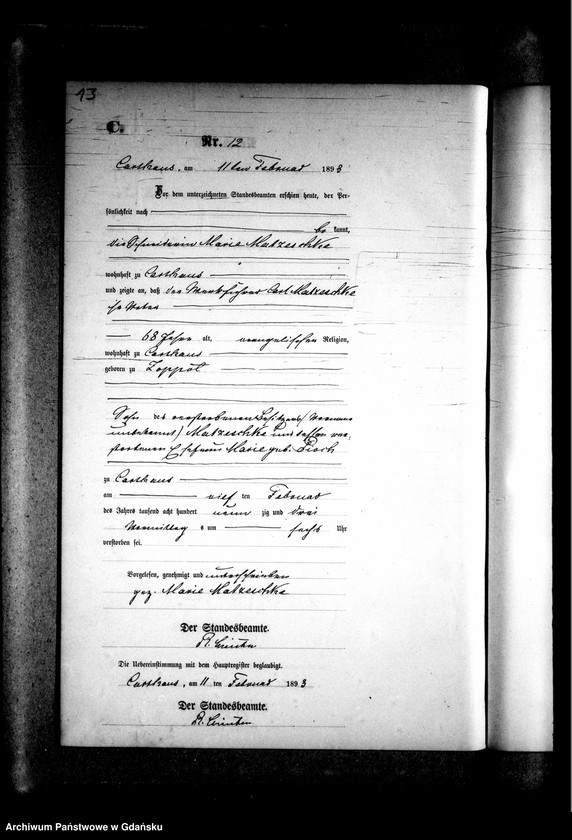 13
C.
Nr. 12
Carthaus, am 11 ten Februar 1893
Vor dem unterzeichneten Standesbeamten erschien heute, der Per-
sönlichkeit nach
be kannt,
die Schneiderin Marie Matzeschke
wohnhaft zu Carthaus
und zeigte an, daß der Werkführer Carl Matzeschke
ihr Vater
68 Jahre alt, evangelischer Religion,
wohnhaft zu Carthaus
geboren zu Zoppot
Sohn des verstorbenen Besitzers (Vorname
unbekannt) Matzeschke und dessen ver-
storbenen Ehefrau Marie geb.
zu Carthaus
am elf ten Februar
des Jahres tausend acht hundert neun zig und drei
Vormittag s um sechs Uhr
verstorben sei.
Vorgelesen, genehmigt und unterschrieben
gez. Marie Matzeschke
Der Standesbeamte.
Die Uebereinstimmung mit dem Hauptregister beglaubigt.
Carthaus, am 11 ten Februar 1893
Der Standesbeamte.
Archiwum Państwowe w Gdańsku